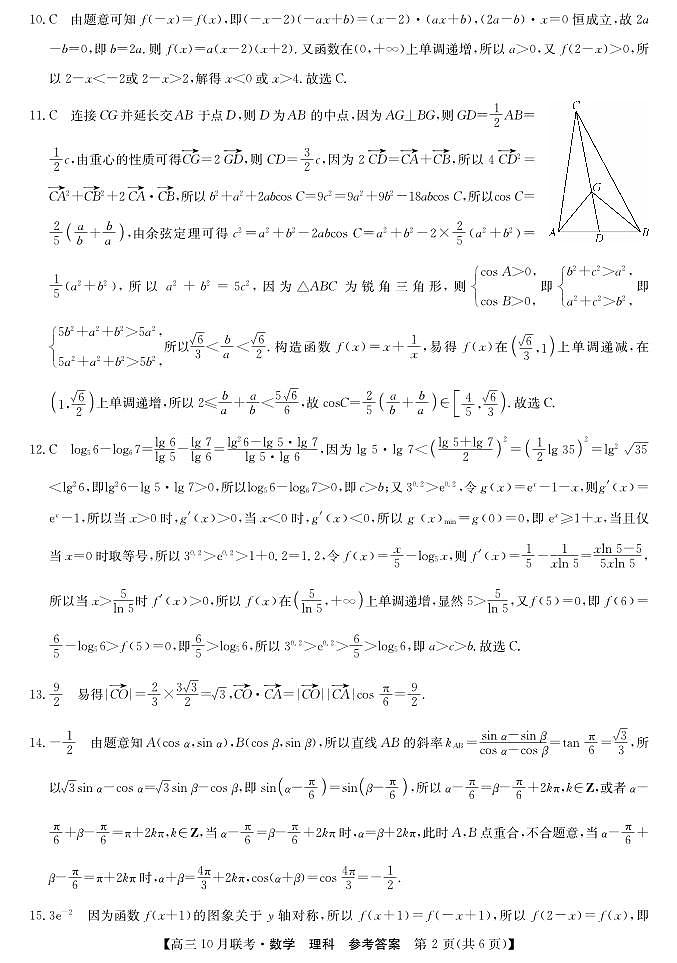 10. C 由题意可知 f(-x)=f(x),即(-x-2)(-ax+b)=(x-2)·(ax+b),(2a-b)·x=0 恒成立,故 2a
-b=0,即 b=2a. 则 f(x)=a(x-2)(x+2). 又函数在(0,+∞)上单调递增,所以 a>0,又 f(2-x)>0,所
以 2-x<-2或 2-x>2,解得 x<0 或 x>4. 故选 C.
11. C 连接 CG 并延长交 AB 于点 D,则 D 为 AB 的中点,因为 AG⊥BG,则 GD=\frac{1}{2}AB=
\frac{1}{2}c,由重心的性质可得\overrightarrow{CG}=2\overrightarrow{GD},则 CD=\frac{3}{2}c,因为 2\overrightarrow{CD}=\overrightarrow{CA}+\overrightarrow{CB},所以 4\overrightarrow{CD}²=
\overrightarrow{CA}²+\overrightarrow{CB}²+2\overrightarrow{CA}·\overrightarrow{CB},所以 b²+a²+2abcos C=9c²=9a²+9b²-18abcos C,所以cos C=
\frac{2}{5}(\frac{a}{b}+\frac{b}{a}),由余弦定理可得 c²=a²+b²-2abcos C=a²+b²-2×\frac{2}{5}(a²+b²)=
\frac{1}{5}(a²+b²),所以 a²+b²=5c²,因为△ABC 为锐角三角形,则{cos A>0, cos B>0,即{b²+c²>a², a²+c²>b²,即
{5b²+a²+b²>5a², 5a²+a²+b²>5b²,所以\frac{√6}{3}<\frac{b}{a}<\frac{√6}{2}. 构造函数 f(x)=x+\frac{1}{x},易得 f(x)在(\frac{√6}{3},1)上单调递减,在
(1,\frac{√6}{2})上单调递增,所以 2≤\frac{b}{a}+\frac{a}{b}<\frac{5√6}{6},故 cosC=\frac{2}{5}(\frac{a}{b}+\frac{b}{a})∈[\frac{4}{5},\frac{√6}{3}). 故选 C.
C
G
A
D
B
12. C log₅6-log₆7=\frac{lg 6}{lg 5}-\frac{lg 7}{lg 6}=\frac{lg²6-lg 5·lg 7}{lg 5·lg 6},因为 lg 5·lg 7<(\frac{lg 5+lg 7}{2})²=(\frac{1}{2}lg 35)²=lg²√35
<lg²6,即lg²6-lg 5·lg 7>0,所以log₅6-log₆7>0,即 c>b;又 3^{0.2}>e^{0.2},令 g(x)=e^x-1-x,则g′(x)=
e^x-1,所以当 x>0 时,g′(x)>0,当x<0 时,g′(x)<0,所以 g(x)_{min}=g(0)=0,即 e^x≥1+x,当且仅
当 x=0 时取等号,所以 3^{0.2}>e^{0.2}>1+0.2=1.2,令 f(x)=\frac{x}{5}-log₅x,则 f′(x)=\frac{1}{5}-\frac{1}{xln 5}=\frac{xln 5-5}{5xln 5},
所以当 x>\frac{5}{ln 5}时 f′(x)>0,所以 f(x)在(\frac{5}{ln 5},+∞)上单调递增,显然 5>\frac{5}{ln 5},又f(5)=0,即 f(6)=
\frac{6}{5}-log₅6>f(5)=0,即\frac{6}{5}>log₅6,所以 3^{0.2}>e^{0.2}>\frac{6}{5}>log₅6,即 a>c>b. 故选 C.
13. \frac{9}{2} 易得|\overrightarrow{CO}|=\frac{2}{3}×\frac{3√3}{2}=√3,\overrightarrow{CO}·\overrightarrow{CA}=|\overrightarrow{CO}||\overrightarrow{CA}|cos \frac{π}{6}=\frac{9}{2}.
14. -\frac{1}{2} 由题意知 A(cos α,sin α),B(cos β,sin β),所以直线 AB 的斜率 k_{AB}=\frac{sin α-sin β}{cos α-cos β}=tan \frac{π}{6}=\frac{√3}{3},所
以√3sin α-cos α=√3sin β-cos β,即 sin(α-\frac{π}{6})=sin(β-\frac{π}{6}),所以 α-\frac{π}{6}=β-\frac{π}{6}+2kπ,k∈Z,或者 α-
\frac{π}{6}+β-\frac{π}{6}=π+2kπ,k∈Z,当 α-\frac{π}{6}=β-\frac{π}{6}+2kπ 时,α=β+2kπ,此时 A,B 点重合,不合题意,当 α-\frac{π}{6}+
β-\frac{π}{6}=π+2kπ 时,α+β=\frac{4π}{3}+2kπ,cos(α+β)=cos \frac{4π}{3}=-\frac{1}{2}.
15. 3e^{-2} 因为函数 f(x+1)的图象关于 y 轴对称,所以 f(x+1)=f(-x+1),所以 f(2-x)=f(x),即
【高三 10 月联考·数学 理科 参考答案 第 2 页(共 6 页)】